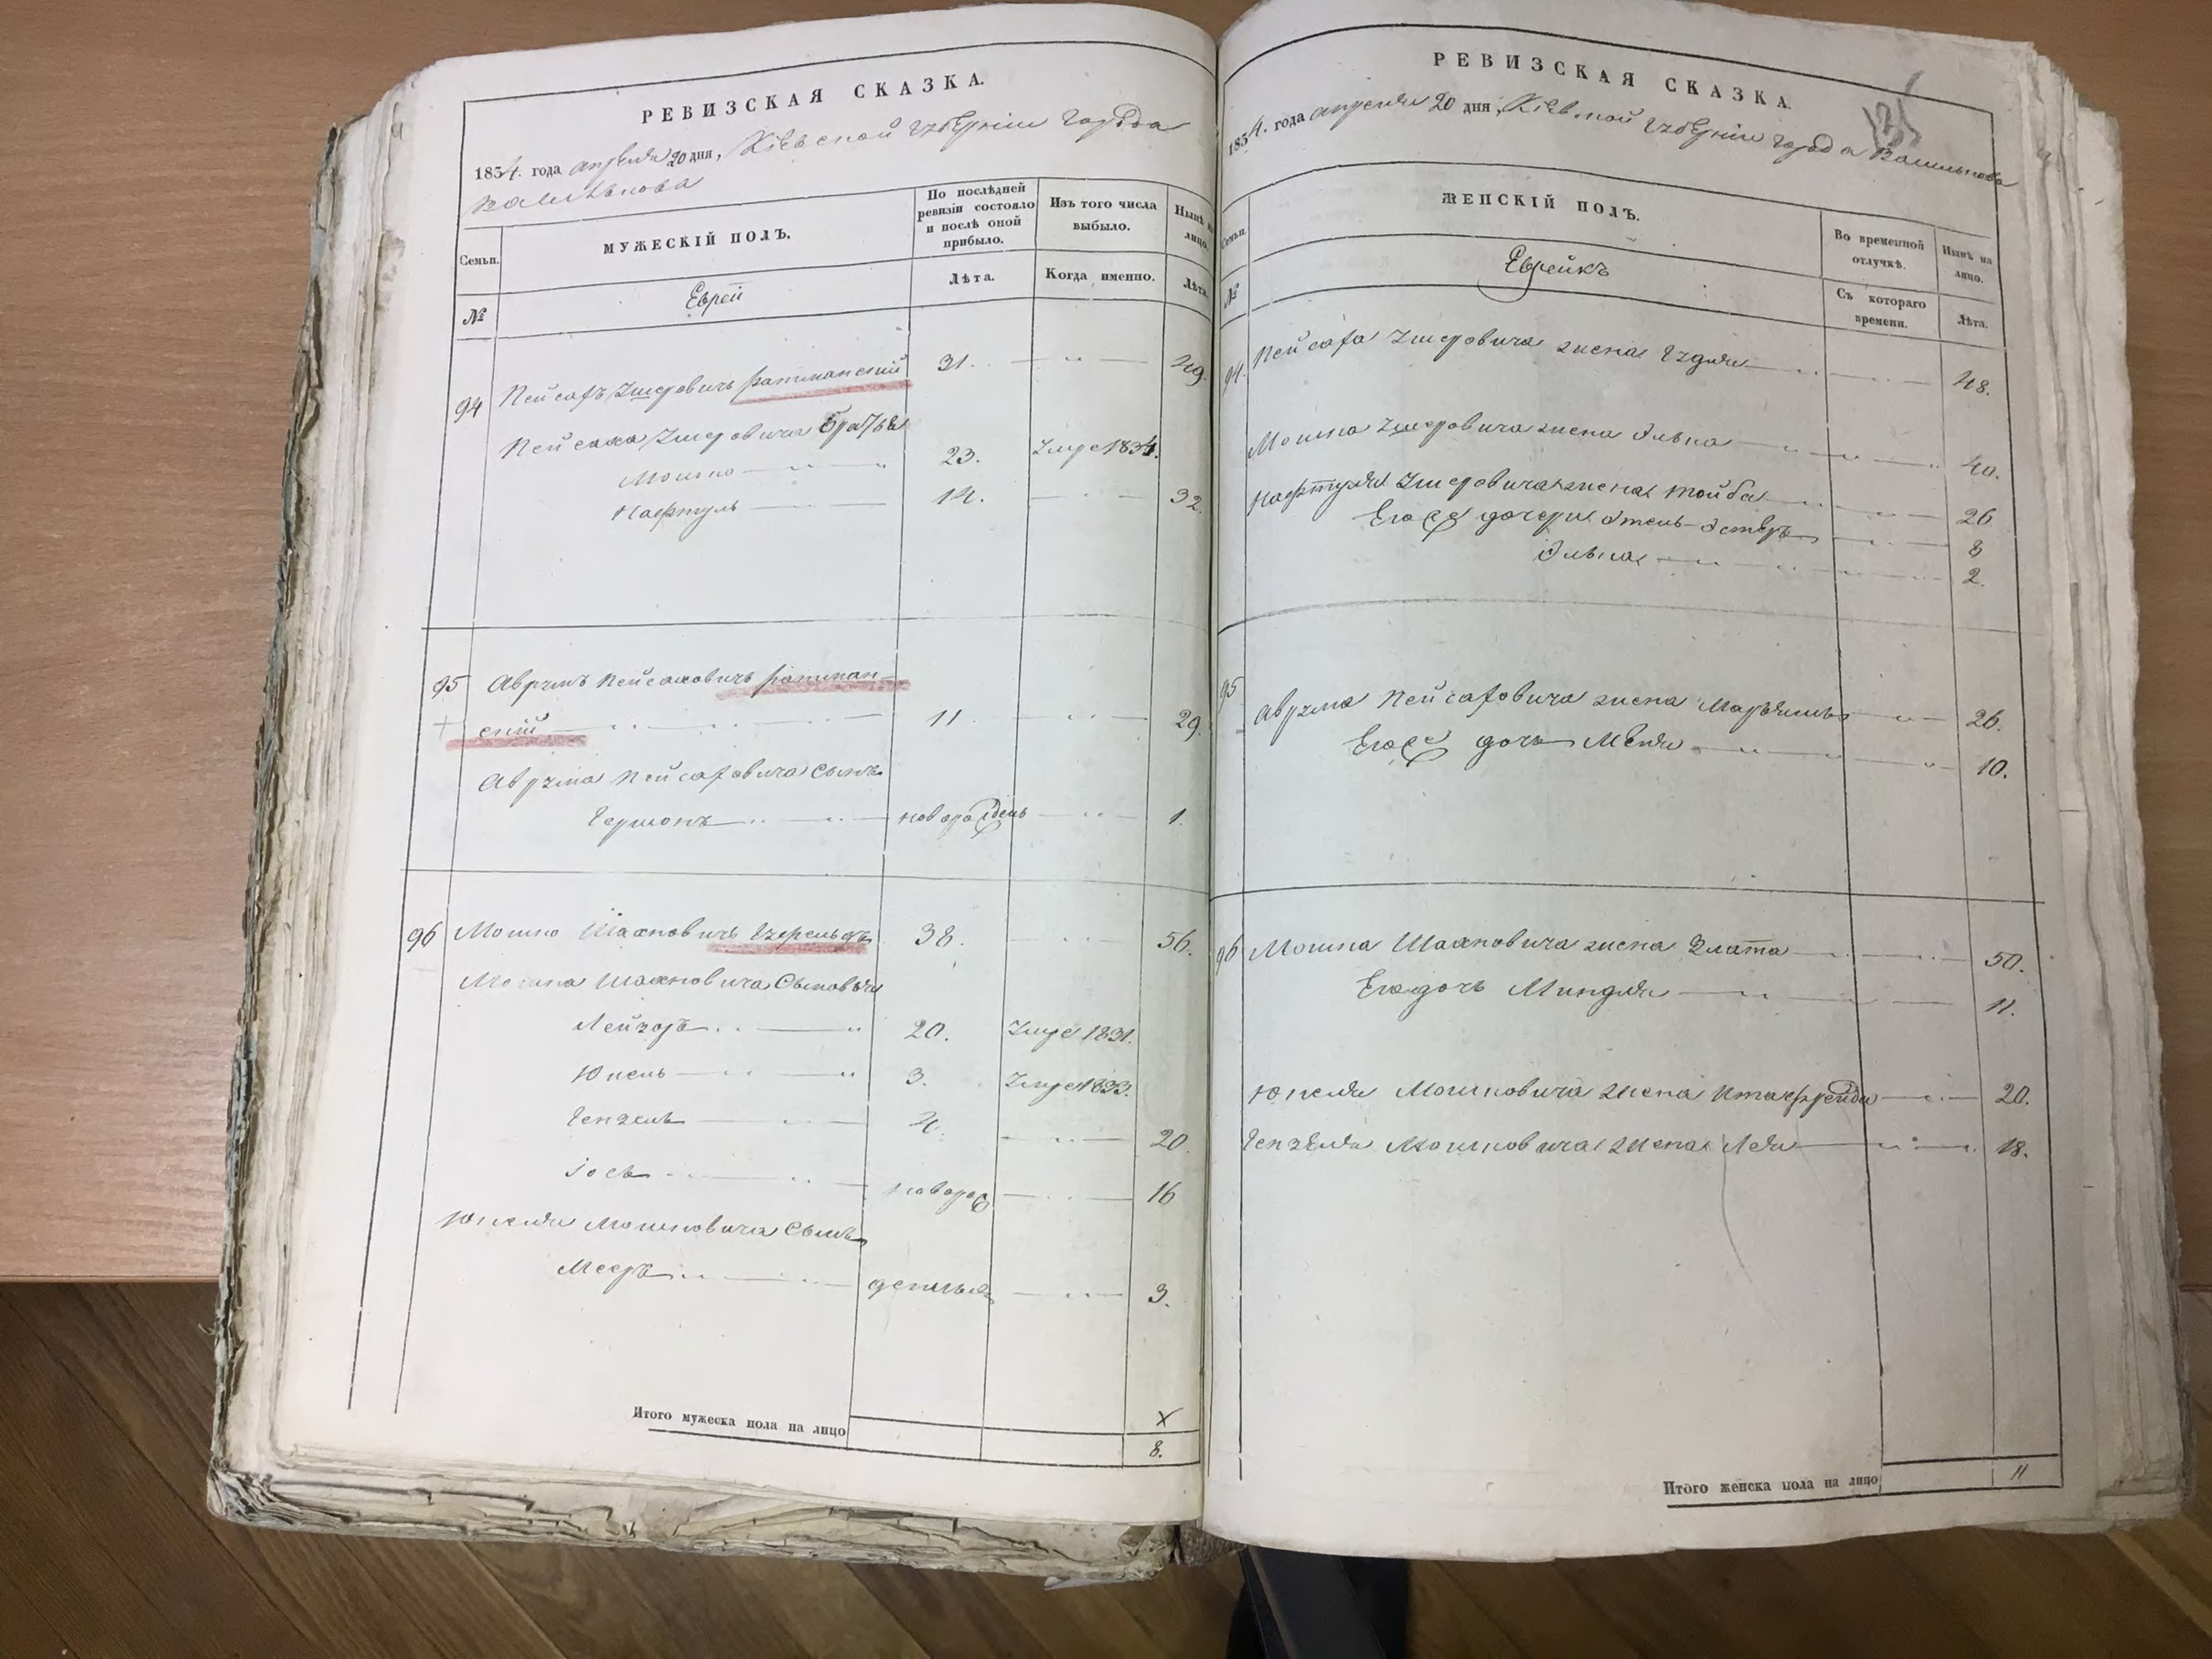 РЕВИЗСКАЯ СКАЗКА.
1854. года апреля 20 дня, Кіевской губерніи города
Василькова
Семьи.
МУЖЕСКІЙ ПОЛЪ.
По послѣдней ревизіи состояло и послѣ оной прибыло.
Изъ того числа выбыло.
Нынѣ на лицо.
№
Еврей
Лѣта.
Когда именно.
Лѣта.
94 Пейсахъ Умеровичъ Ратманскій 31. 49.
Пейсаха Умеровича братья
Мошко 23. Умре 1834.
Нафтуль 14. 32.
95 Аврумъ Пейсаховичъ Ратман-
скій 11 29.
Аврума Пейсаховича сынъ
Гершонъ новорожденъ 1.
96 Мошко Шахновичъ 38. 56.
Мошка Шахновича сыновья
Лейзоръ 20. Умре 1831.
Юкель 3. Умре 1833.
Гензель 2. 20.
Іось новорож 16
Юкеля Мошковича сынъ
Мееръ 3.
Итого мужеска пола на лицо 8.
РЕВИЗСКАЯ СКАЗКА.
121
1854. года апреля 20 дня, Кіевской губерніи города Василькова
Семьи.
ЖЕНСКІЙ ПОЛЪ.
Во временной отлучкѣ.
Нынѣ на лицо.
№
Еврейкъ
Съ котораго времени.
Лѣта.
94. Пейсаха Умеровича жена Гудля 48.
Мошка Умеровича жена Элька 40.
Нафтуля Умеровича жена Тойба 26
Егоже дочери Этель-Эстеръ 8
Элька 2.
95 Аврума Пейсаховича жена Марьямъ 26.
Егоже дочь Меня 10.
96 Мошка Шахновича жена Злата 50.
Его дочь Миндля 11.
Юкеля Мошковича жена Итафрейда 20.
Гензеля Мошковича жена Лея 18.
Итого женска пола на лицо 11